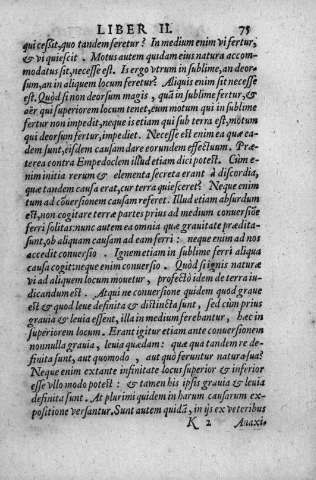 LIBER II. 75
qui cessit, quo tandem feretur? In medium enim vi fertur,
& vi quiescit. Motus autem quidam eius natura accom-
modatus sit, necesse est. Is ergo vtrum in sublime, an deor-
sum, an in aliquem locum feretur? Aliquis enim sit necesse
est. Quòd si non deorsum magis, quàm in sublime fertur, &
aër qui superiorem locum tenet, eum motum qui in sublime
fertur non impedit, neque is etiam qui sub terra est, motum
qui deorsum fertur, impediet. Necesse est enim ea quæ ea-
dem sunt, eisdem causam dare eorundem effectuum. Præ-
terea contra Empedoclem illud etiam dici potest. Cùm e-
nim initia rerum & elementa secreta erant à discordia,
quæ tandem causa erat, cur terra quiesceret? Neque enim
tum ad cōuersionem causam referet. Illud etiam absurdum
est, non cogitare terræ partes prius ad medium conuersiōe
ferri solitas: nunc autem ea omnia quæ grauitate prædita
sunt, ob aliquam causam ad eam ferri: neque enim ad nos
accedit conuersio. Ignem etiam in sublime ferri aliqua
causa cogit: neque enim conuersio. Quòd si ignis naturæ
vi ad aliquem locum mouetur, profectò idem de terra iu-
dicandum est. Atqui ne conuersione quidem quod graue
est & quod leue definita & distincta sunt, sed cùm prius
grauia & leuia essent, illa in medium ferebantur, hæc in
superiorem locum. Erant igitur etiam ante conuersionem
nonnulla grauia, leuia quædam: quæ qua tandem re de-
finita sunt, aut quomodo, aut quò feruntur natura sua?
Neque enim extante infinitate locus superior & inferior
esse vllo modo potest: & tamen his ipsis grauia & leuia
definita sunt. At plurimi quidem in harum causarum ex-
positione versantur. Sunt autem quidā, in ijs ex veteribus
K 2 Anaxi-